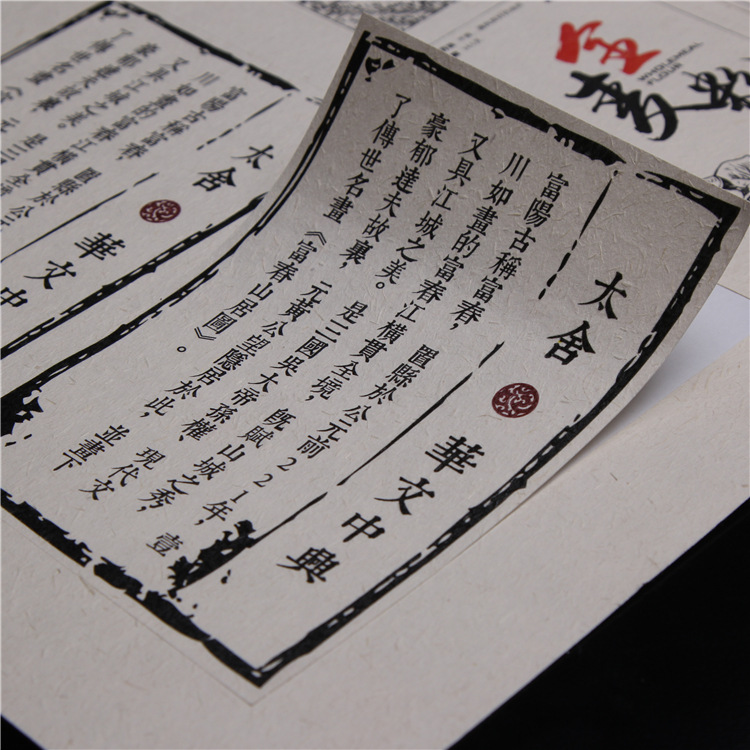 全麥
WHOLEMEAL
FLOUR
太舍 華文中興
富陽古稱富春，置縣於公元前221年，壹
川如畫的富春江橫貫全境，既賦山城之秀，
又具江城之美。是三國吳大帝孫權、現代文
豪郁達夫故裏，元黃公望隱居於此，並畫下
了傳世名畫《富春山居圖》。
太舍 華文中
富陽古稱富春，置縣於公元
川如畫的富春江橫貫全
又具江城之美。是三
豪郁達夫故裏，
了傳世名畫